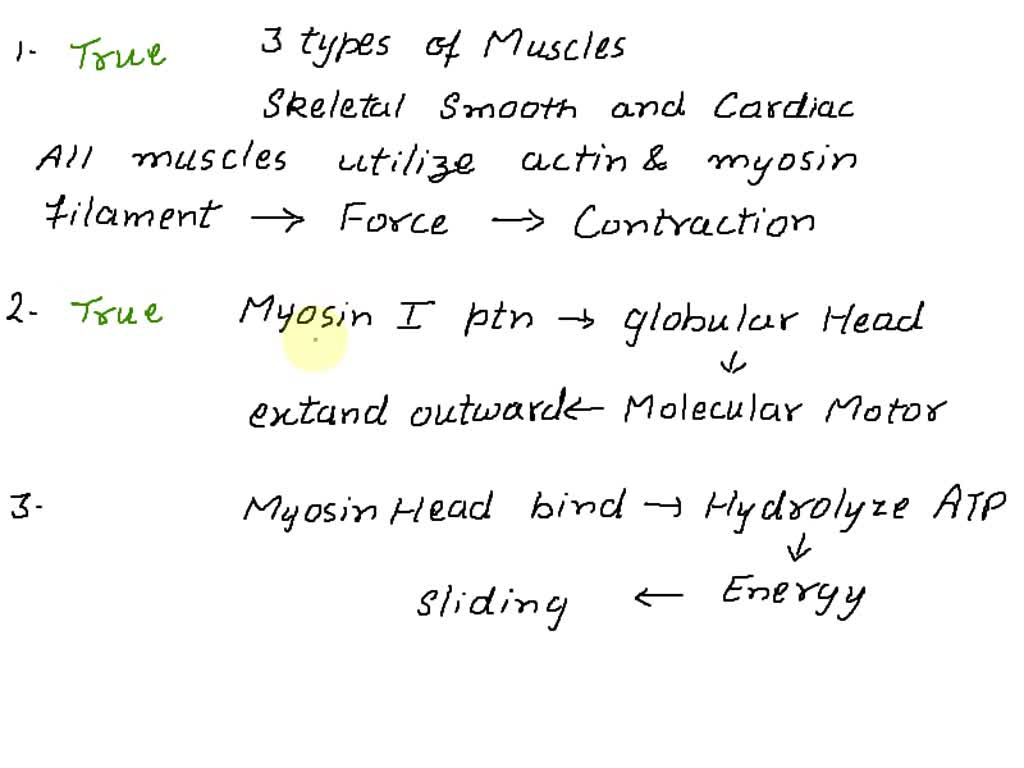 1- True 3 types of Muscles
Skeletal Smooth and Cardiac
All muscles utilize actin & myosin
filament → Force → Contraction
2- True Myosin I ptn → globular Head
↓
extand outward ← Molecular Motor
3- Myosin Head bind → Hydrolyze ATP
↓
sliding ← Energy